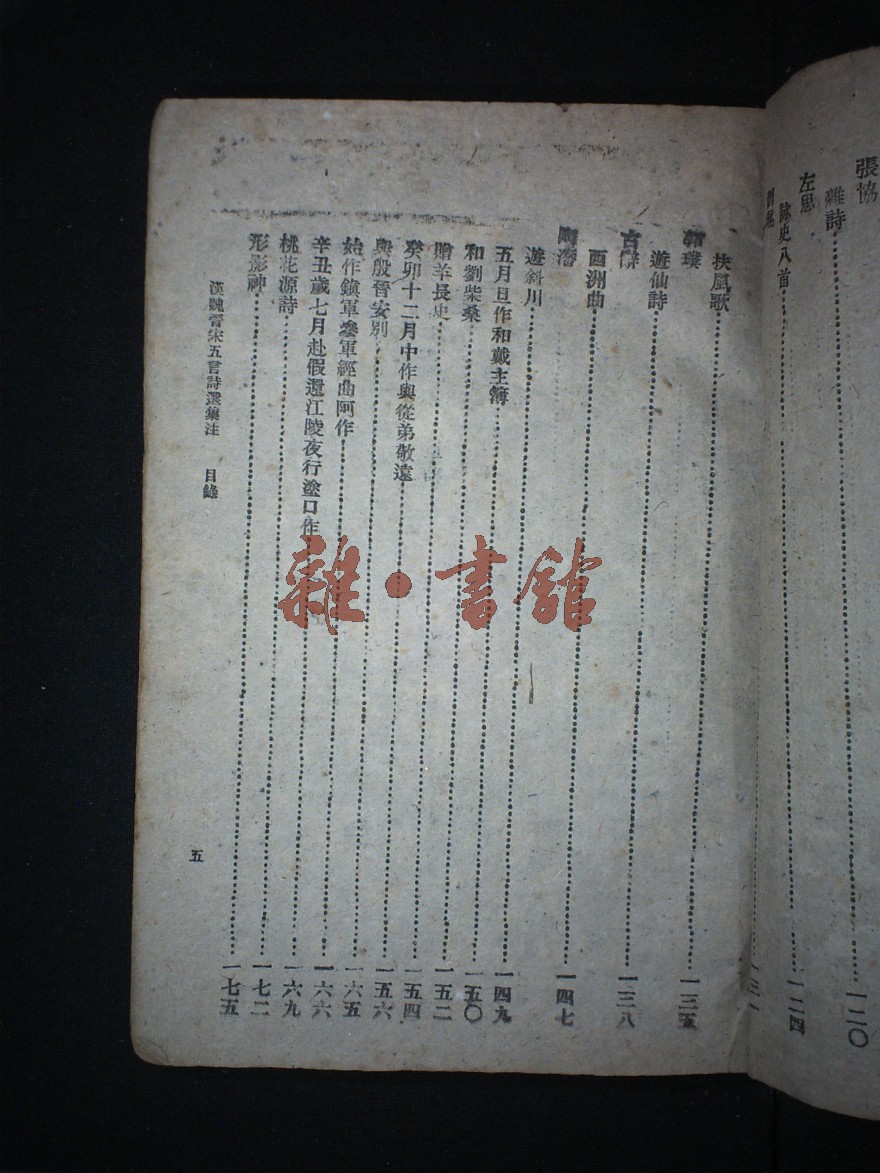 張協
雜詩 一二〇
左思
詠史八首 一二四
扶風歌 一三五
郭璞
遊仙詩 一三八
古辭
西洲曲 一四七
陶潛
遊斜川 一四九
五月旦作和戴主簿 一五〇
和劉柴桑 一五二
贈羊長史 一五四
癸卯十二月中作與從弟敬遠 一五六
與殷晉安別 一六五
始作鎮軍參軍經曲阿作 一六六
辛丑歲七月赴假還江陵夜行塗口作 一六九
桃花源詩 一七二
形影神 一七五
漢魏晉宋五言詩選集注 目錄
五
雜·書館